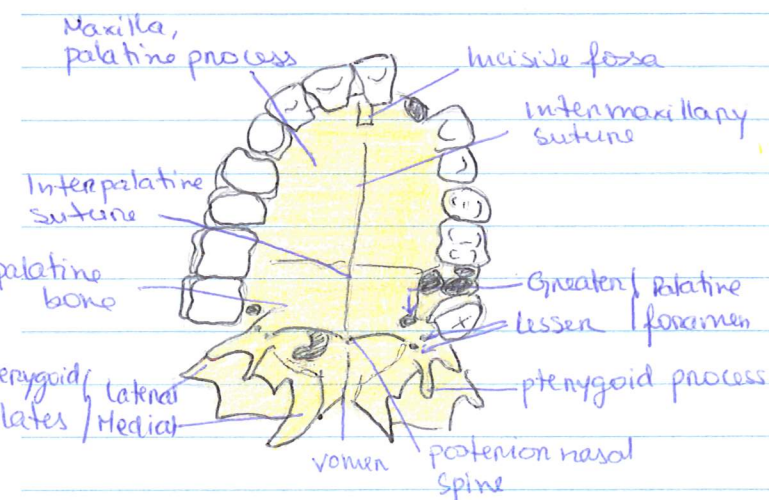 Maxilla,
palatine process
Incisive fossa
Intermaxillary
suture
Interpalatine
suture
palatine
bone
Greater
Lesser
Palatine
foramen
erygoid
lates
Lateral
Medial
pterygoid process
vomer
posterior nasal
spine